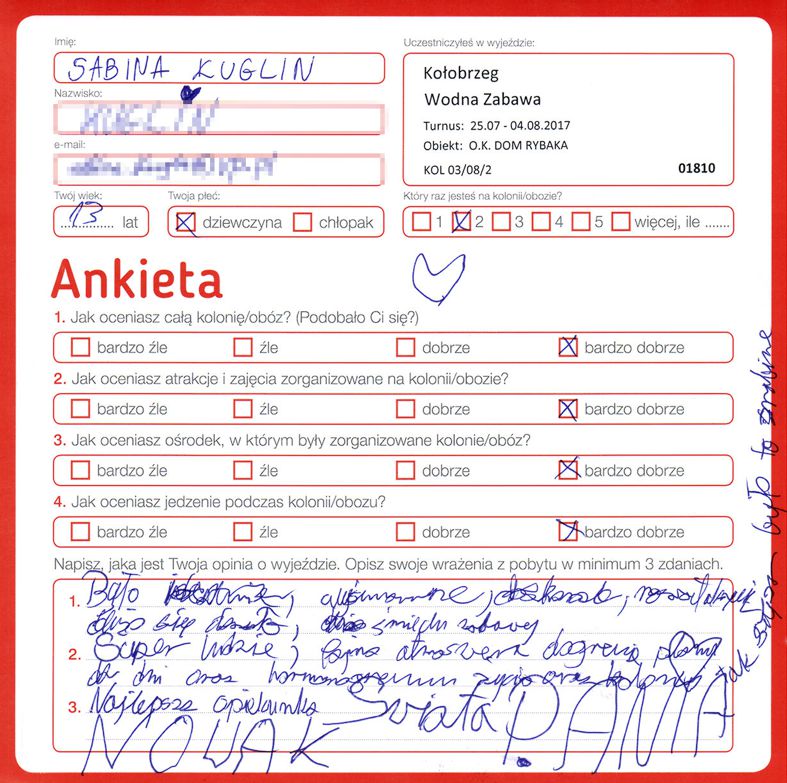 Imię:
SABINA KUGLIN
Nazwisko:
e-mail:
Twój wiek:
13 lat
Twoja płeć:
dziewczyna chłopak
Uczestniczyłeś w wyjeździe:
Kołobrzeg
Wodna Zabawa
Turnus: 25.07 - 04.08.2017
Obiekt: O.K. DOM RYBAKA
KOL 03/08/2 01810
Który raz jesteś na kolonii/obozie?
1 2 3 4 5 więcej, ile .......
Ankieta
1. Jak oceniasz całą kolonię/obóz? (Podobało Ci się?)
bardzo źle źle dobrze bardzo dobrze
2. Jak oceniasz atrakcje i zajęcia zorganizowane na kolonii/obozie?
bardzo źle źle dobrze bardzo dobrze
3. Jak oceniasz ośrodek, w którym były zorganizowane kolonie/obóz?
bardzo źle źle dobrze bardzo dobrze
4. Jak oceniasz jedzenie podczas kolonii/obozu?
bardzo źle źle dobrze bardzo dobrze
Napisz, jaka jest Twoja opinia o wyjeździe. Opisz swoje wrażenia z pobytu w minimum 3 zdaniach.
1. Było
się działo, śmiechu zabawy
2. Super ludzie, fajna atmosfera
dni oraz
3. Najlepsza opiekunka Świata P. ANIA
NOWAK
jak było to